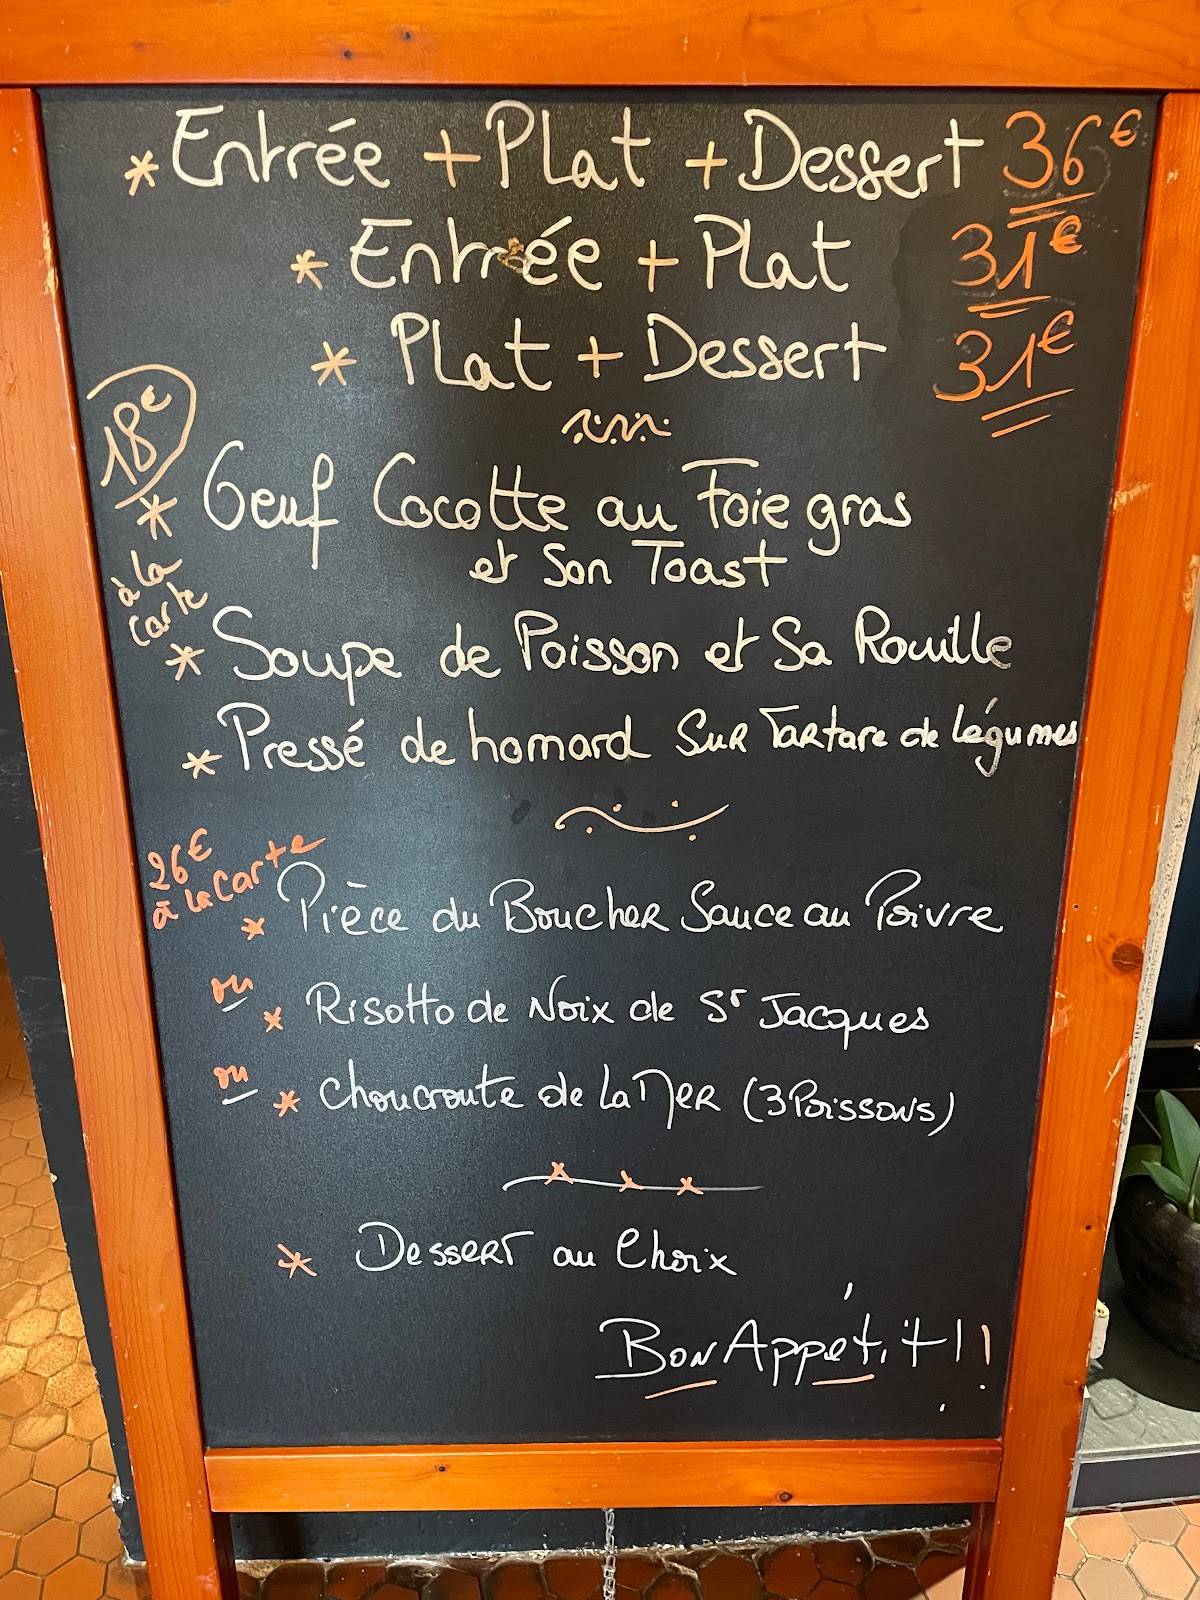 * Entrée + Plat + Dessert 36€
* Entrée + Plat 31€
* Plat + Dessert 31€
18€
à la
carte
* Oeuf Cocotte au Foie gras
et Son Toast
* Soupe de Poisson et Sa Rouille
* Pressé de homard Sur Tartare de légumes
26€
à la carte
* Pièce du Boucher Sauce au Poivre
ou * Risotto de Noix de St Jacques
ou * Choucroute de La Mer (3 Poissons)
* Dessert au Choix
Bon Appétit !!